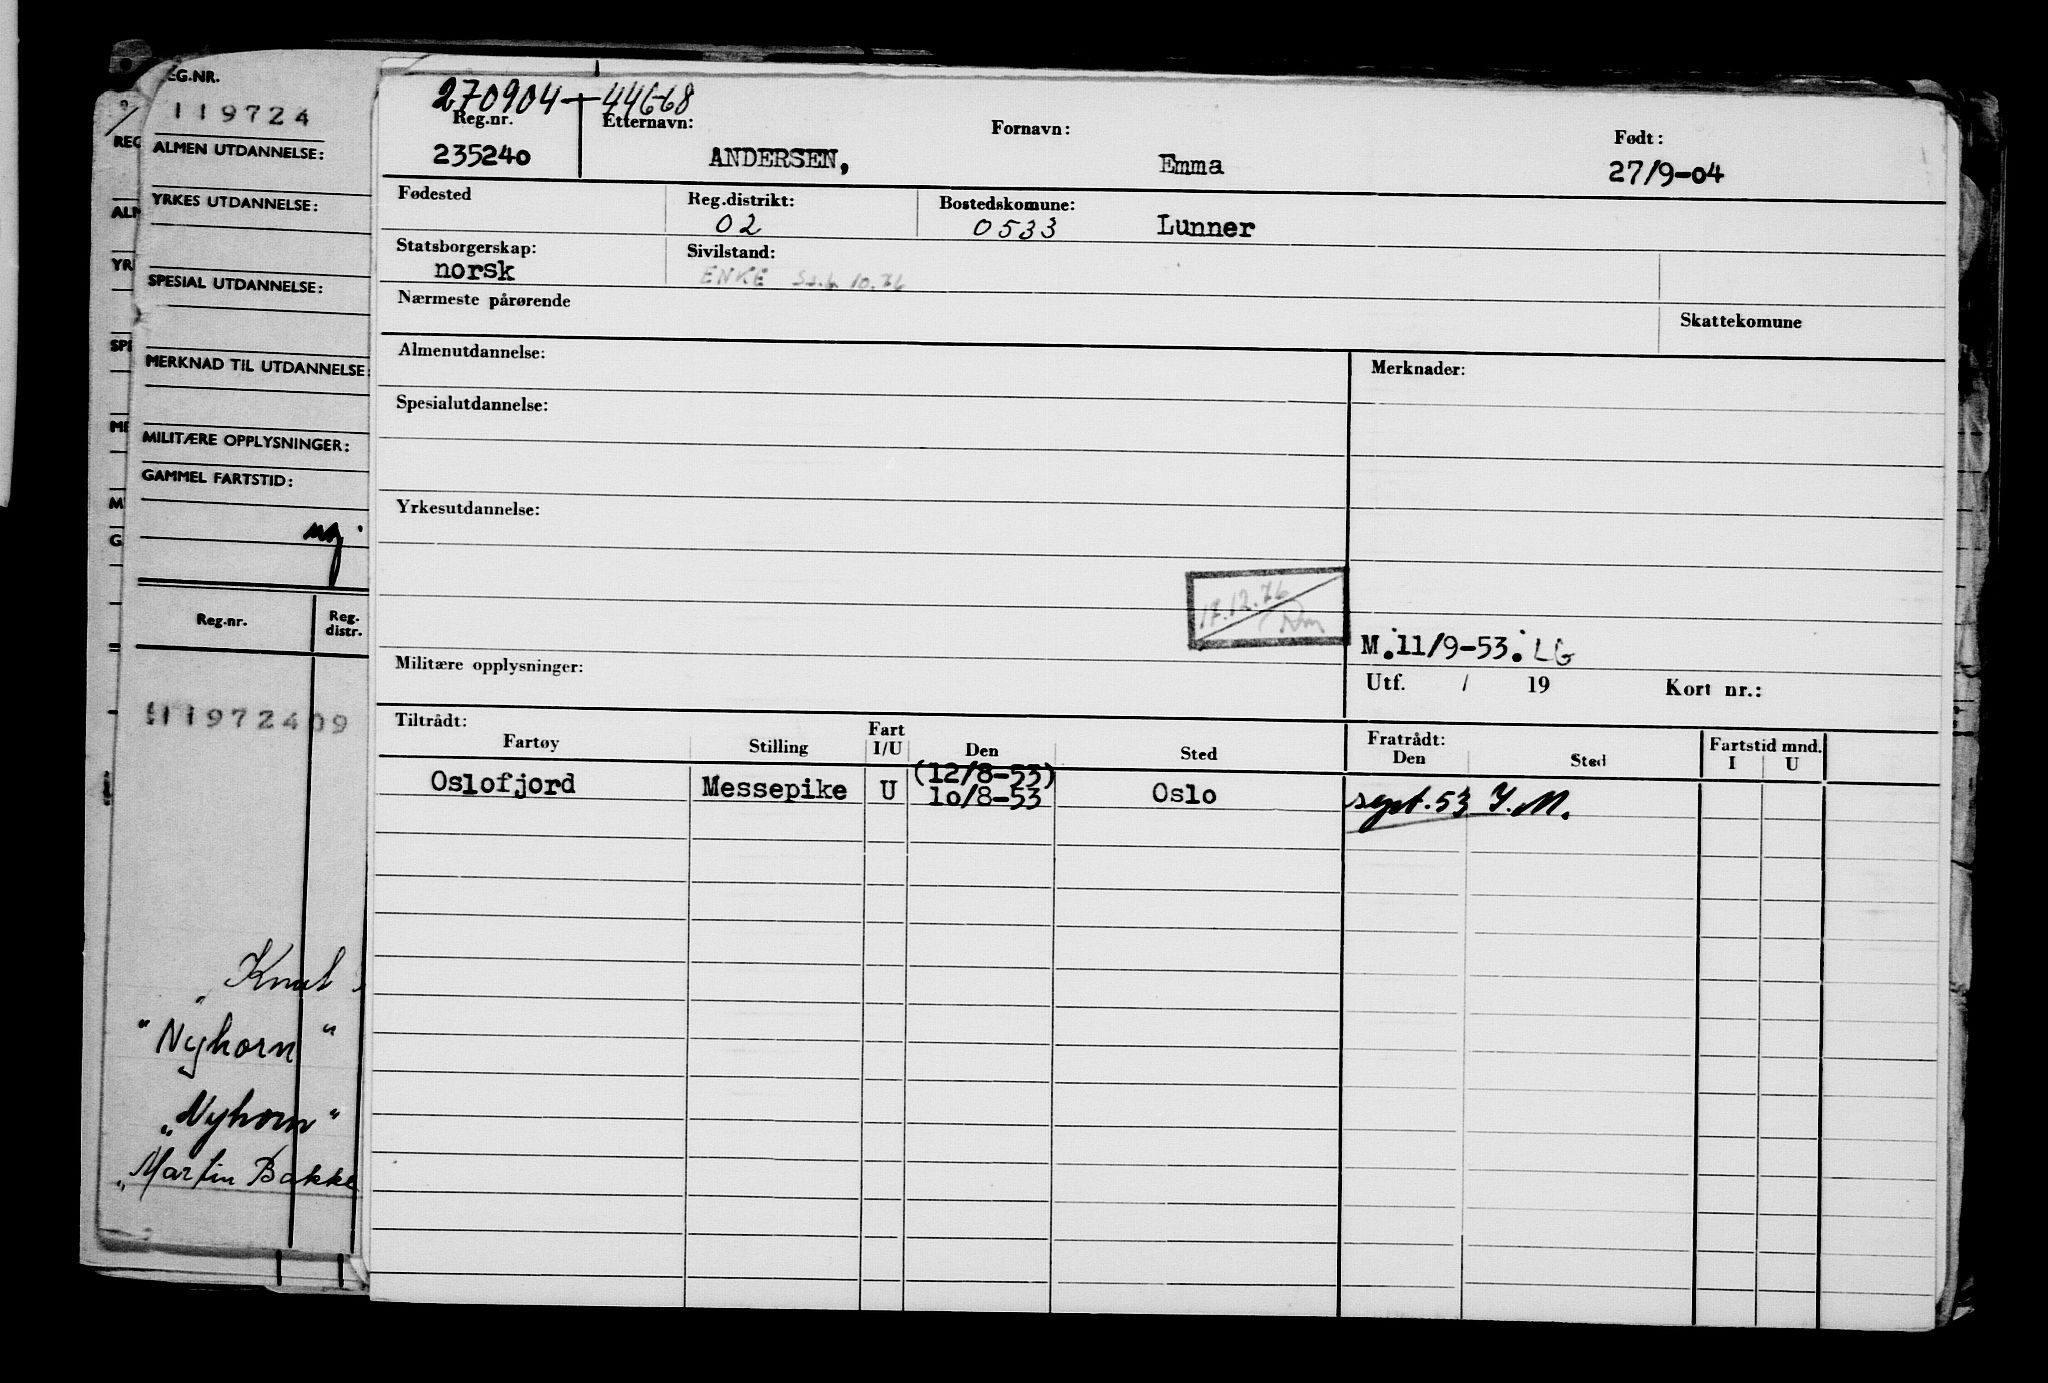 EG.NR.
119724
ALMEN UTDANNELSE:
YRKES UTDANNELSE:
SPESIAL UTDANNELSE:
MERKNAD TIL UTDANNELSE:
MILITÆRE OPPLYSNINGER:
GAMMEL FARTSTID:
Reg.nr. Reg. distr.
11972409
Knut
"Nyhorn"
"Nyhorn"
"Martin Bakke
REG
ALM
YR
SPE
ME
M
G
270904 44668
Reg.nr. Etternavn: Fornavn: Født:
235240 ANDERSEN, Emma 27/9-04
Fødested Reg.distrikt: Bostedskomune:
02 0533 Lunner
Statsborgerskap: Sivilstand:
norsk ENKE 10.76
Nærmeste pårørende Skattekomune
Almenutdannelse: Merknader:
Spesialutdannelse:
Yrkesutdannelse:
17.12.76
M.11/9-53. LG
Militære opplysninger: Utf. / 19 Kort nr.:
Tiltrådt: Fart Fratrådt: Fartstid mnd.
Fartøy Stilling I/U Den Sted Den Sted I U
(12/8-53)
Oslofjord Messepike U 10/8-53 Oslo sept. 53 Y.M.